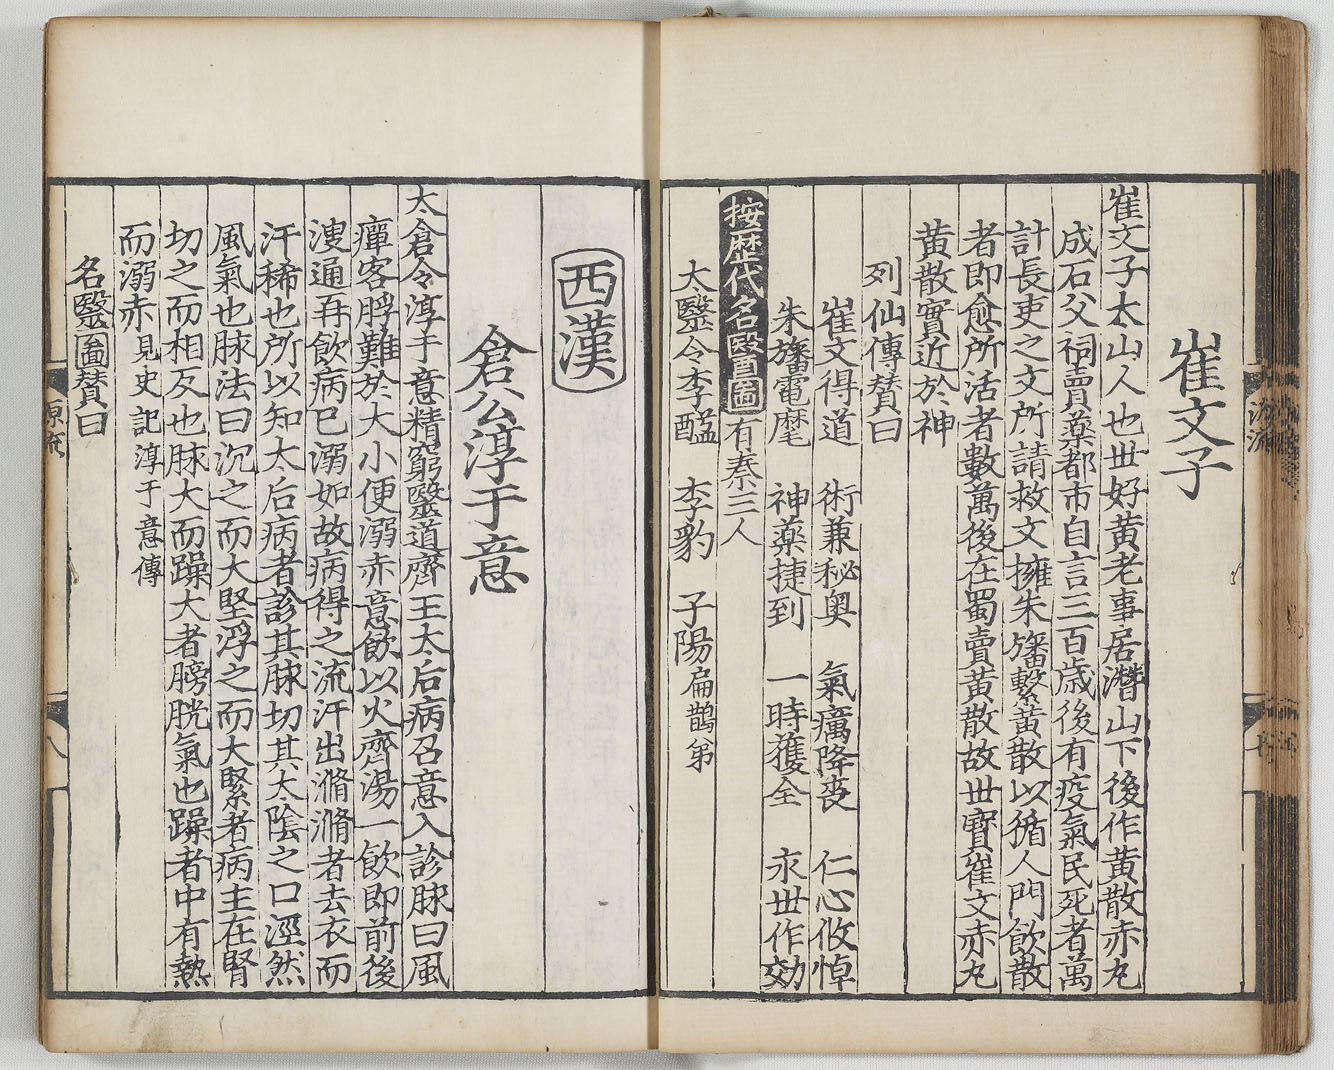 崔文子
崔文子太山人也世好黄老事居潛山下後作黄散赤丸
成石父祠賣藥都市自言三百歳後有疫氣民死者萬
計長吏之文所請救文擁朱旛繫黄散以循人門飲散
者即愈所活者數萬後在蜀賣黄散故世寳崔文赤丸
黄散實近於神
列仙傳賛曰
崔文得道　術兼秘奥　氣癘降喪　仁心攸悼
朱旛電麾　神藥捷到　一時獲全　永世作効
按歴代名醫圗有秦三人
太毉令李醯　李豹　子陽扁鵲弟
西漢
倉公淳于意
太倉令淳于意精窮毉道齊王太后病召意入診脉曰風
癉客脬難於大小便溺赤意飲以火齊湯一飲即前後
溲通再飲病已溺如故病得之流汗出滫滫者去衣而
汗稀也所以知太后病者診其脉切其太陰之口溼然
風氣也脉法曰沉之而大堅浮之而大緊者病主在腎
切之而相反也脉大而躁大者膀胱氣也躁者中有熱
而溺赤見史記淳于意傳
名毉圗賛曰
原流
八